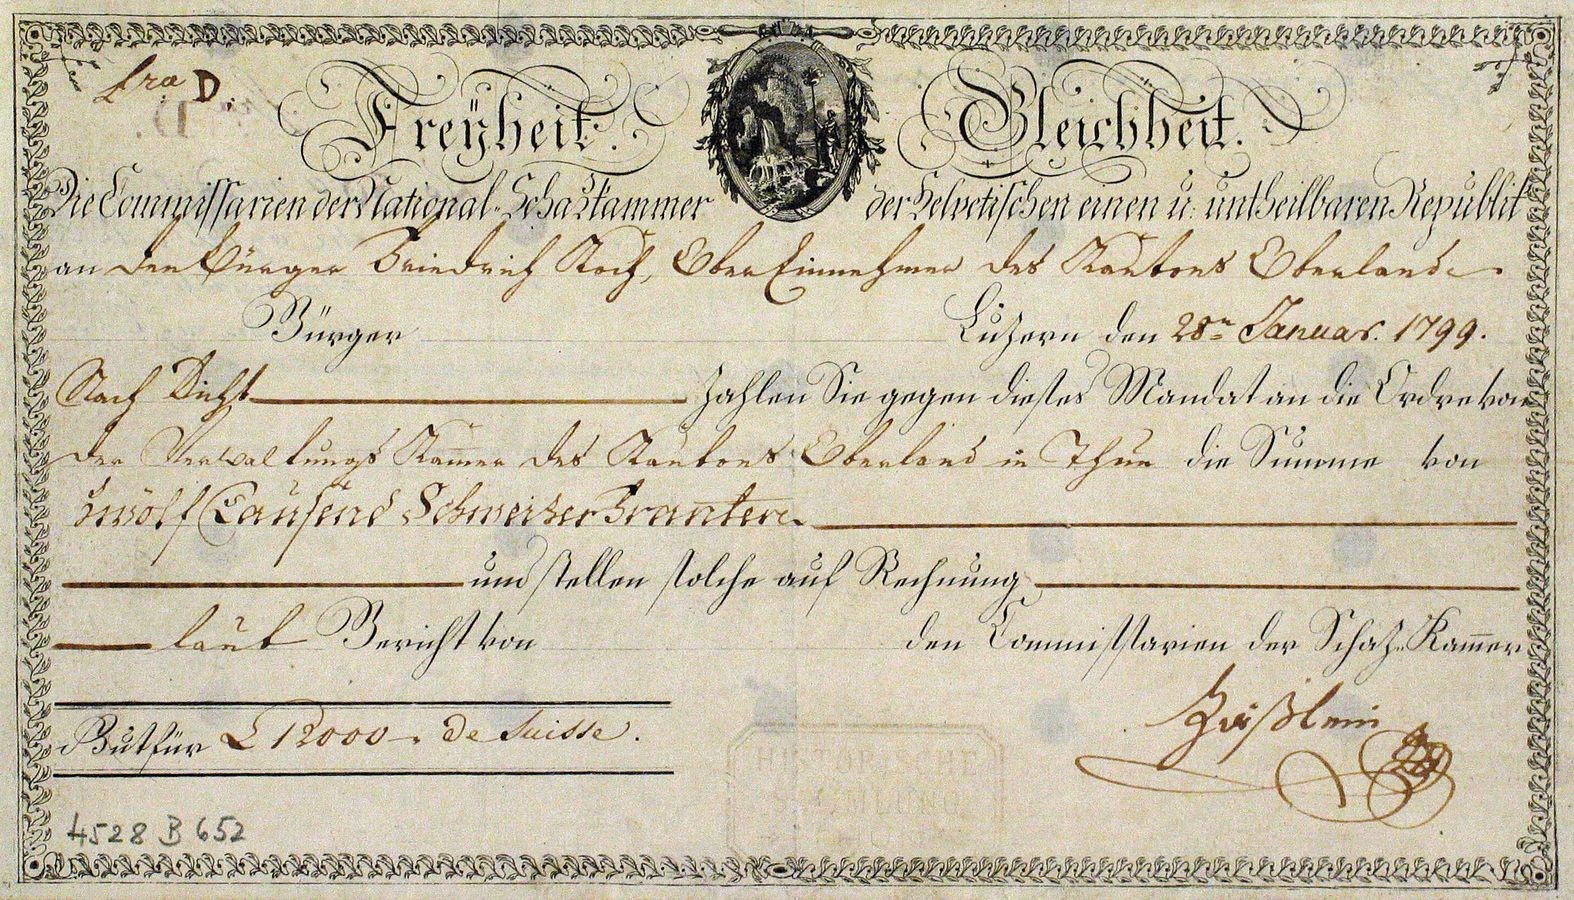 Lra D.
Freÿheit. Gleichheit.
Die Commissarien der National-Schazkammer der Helvetischen einen u: untheilbaren Republik
an den Bürger Friedrich Koch, Ober Einnehmer des Kantons Oberland.
Bürger Luzern den 28n Januar. 1799.
Nach Sicht zahlen Sie gegen dieses Mandat an die Ordre von
der Verwaltungs Kam̅er des Kantons Oberland in Thun die Summe von
zwölf Tausend Schweizer Franken.
und stellen solche auf Rechnung
laut Bericht von den Commissarien der Schaz-Kam̅er
Gut für L 12000. de Suisse.
4528 B 652